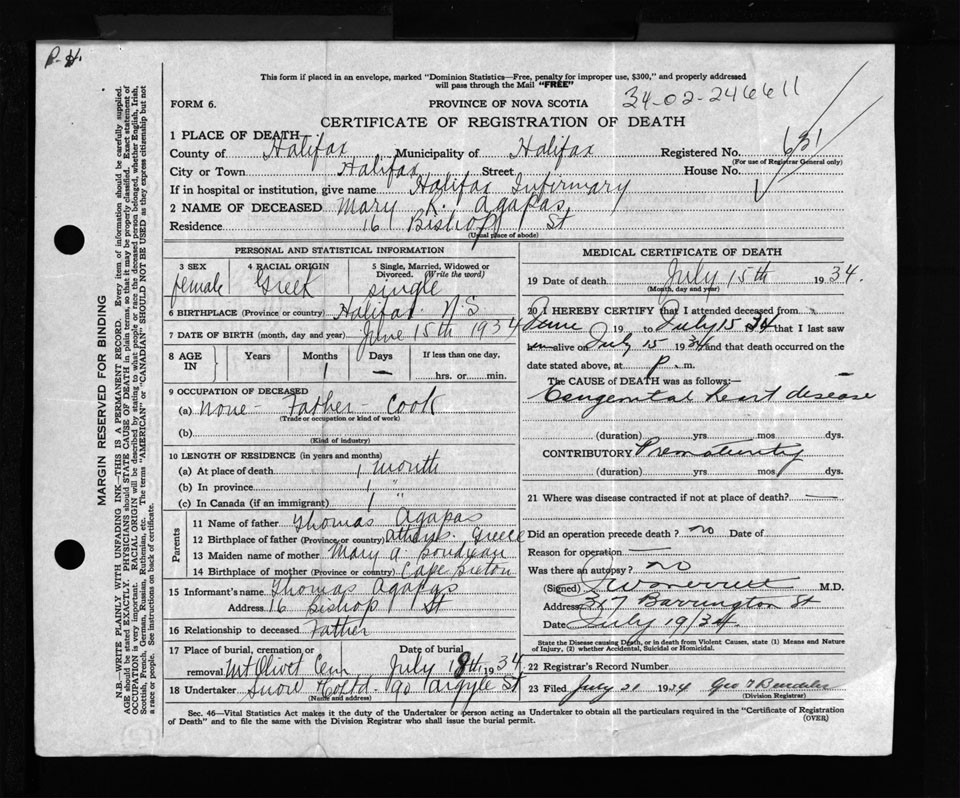 P.H.
This form if placed in an envelope, marked "Dominion Statistics—Free, penalty for improper use, $300," and properly addressed
will pass through the Mail "FREE"
34-02-246611
FORM 6.
PROVINCE OF NOVA SCOTIA
CERTIFICATE OF REGISTRATION OF DEATH
1 PLACE OF DEATH
County of Halifax Municipality of Halifax Registered No. 651
(For use of Registrar General only)
City or Town Halifax Street House No.
If in hospital or institution, give name Halifax Infirmary
2 NAME OF DECEASED Mary K. Agapas
Residence 16 Bishop St
(Usual place of abode)
PERSONAL AND STATISTICAL INFORMATION
3 SEX female
4 RACIAL ORIGIN Greek
5 Single, Married, Widowed or Divorced. (Write the word) single
6 BIRTHPLACE (Province or country) Halifax N.S
7 DATE OF BIRTH (month, day and year) June 15th 1934
8 AGE IN Years Months Days If less than one day,
1 — hrs. or min.
9 OCCUPATION OF DECEASED
(a) none - Father - Cook
(Trade or occupation or kind of work)
(b)
(Kind of industry)
10 LENGTH OF RESIDENCE (in years and months)
(a) At place of death 1 month
(b) In province 1 "
(c) In Canada (if an immigrant) 1
Parents
11 Name of father Thomas Agapas
12 Birthplace of father (Province or country) Greece
13 Maiden name of mother Mary A.
14 Birthplace of mother (Province or country) Cape Breton
15 Informant's name Thomas Agapas
Address 16 Bishop St
16 Relationship to deceased Father
17 Place of burial, cremation or removal Mt Olivet Cem Date of burial July 18th 1934
18 Undertaker Snow Co Ltd 90 Argyle St
(Name and address)
MEDICAL CERTIFICATE OF DEATH
19 Date of death July 15th 1934.
(Month, day and year)
20 I HEREBY CERTIFY that I attended deceased from
June 19 to July 15 34 that I last saw
h alive on July 15 1934 and that death occurred on the
date stated above, at P. m.
The CAUSE of DEATH was as follows:—
Congenital heart disease
(duration) yrs. mos. dys.
CONTRIBUTORY Prematurity
(duration) yrs. mos. dys.
21 Where was disease contracted if not at place of death? —
Did an operation precede death? no Date of
Reason for operation —
Was there an autopsy? no
(Signed) M.D.
Address 317 Barrington St
Date July 19/34
State the Disease causing Death, or in death from Violent Causes, state (1) Means and Nature
of Injury, (2) whether Accidental, Suicidal or Homicidal.
22 Registrar's Record Number
23 Filed July 21 1934 Geo
(Division Registrar)
Sec. 46—Vital Statistics Act makes it the duty of the Undertaker or person acting as Undertaker to obtain all the particulars required in the "Certificate of Registration
of Death" and to file the same with the Division Registrar who shall issue the burial permit.
(OVER)
MARGIN RESERVED FOR BINDING
N.B.—WRITE PLAINLY WITH UNFADING INK—THIS IS A PERMANENT RECORD. Every item of information should be carefully supplied.
AGE should be stated EXACTLY. PHYSICIANS should STATE CAUSE OF DEATH in plain terms, so that it may be properly classified. Exact statement of
OCCUPATION is very important. RACIAL ORIGIN will be described by stating to what people or race the deceased person belonged, whether English, Irish,
Scottish, French, German, Russian, Ruthenian, etc. The terms "AMERICAN" or "CANADIAN" SHOULD NOT BE USED as they express citizenship but not
a race or people. See instructions on back of certificate.